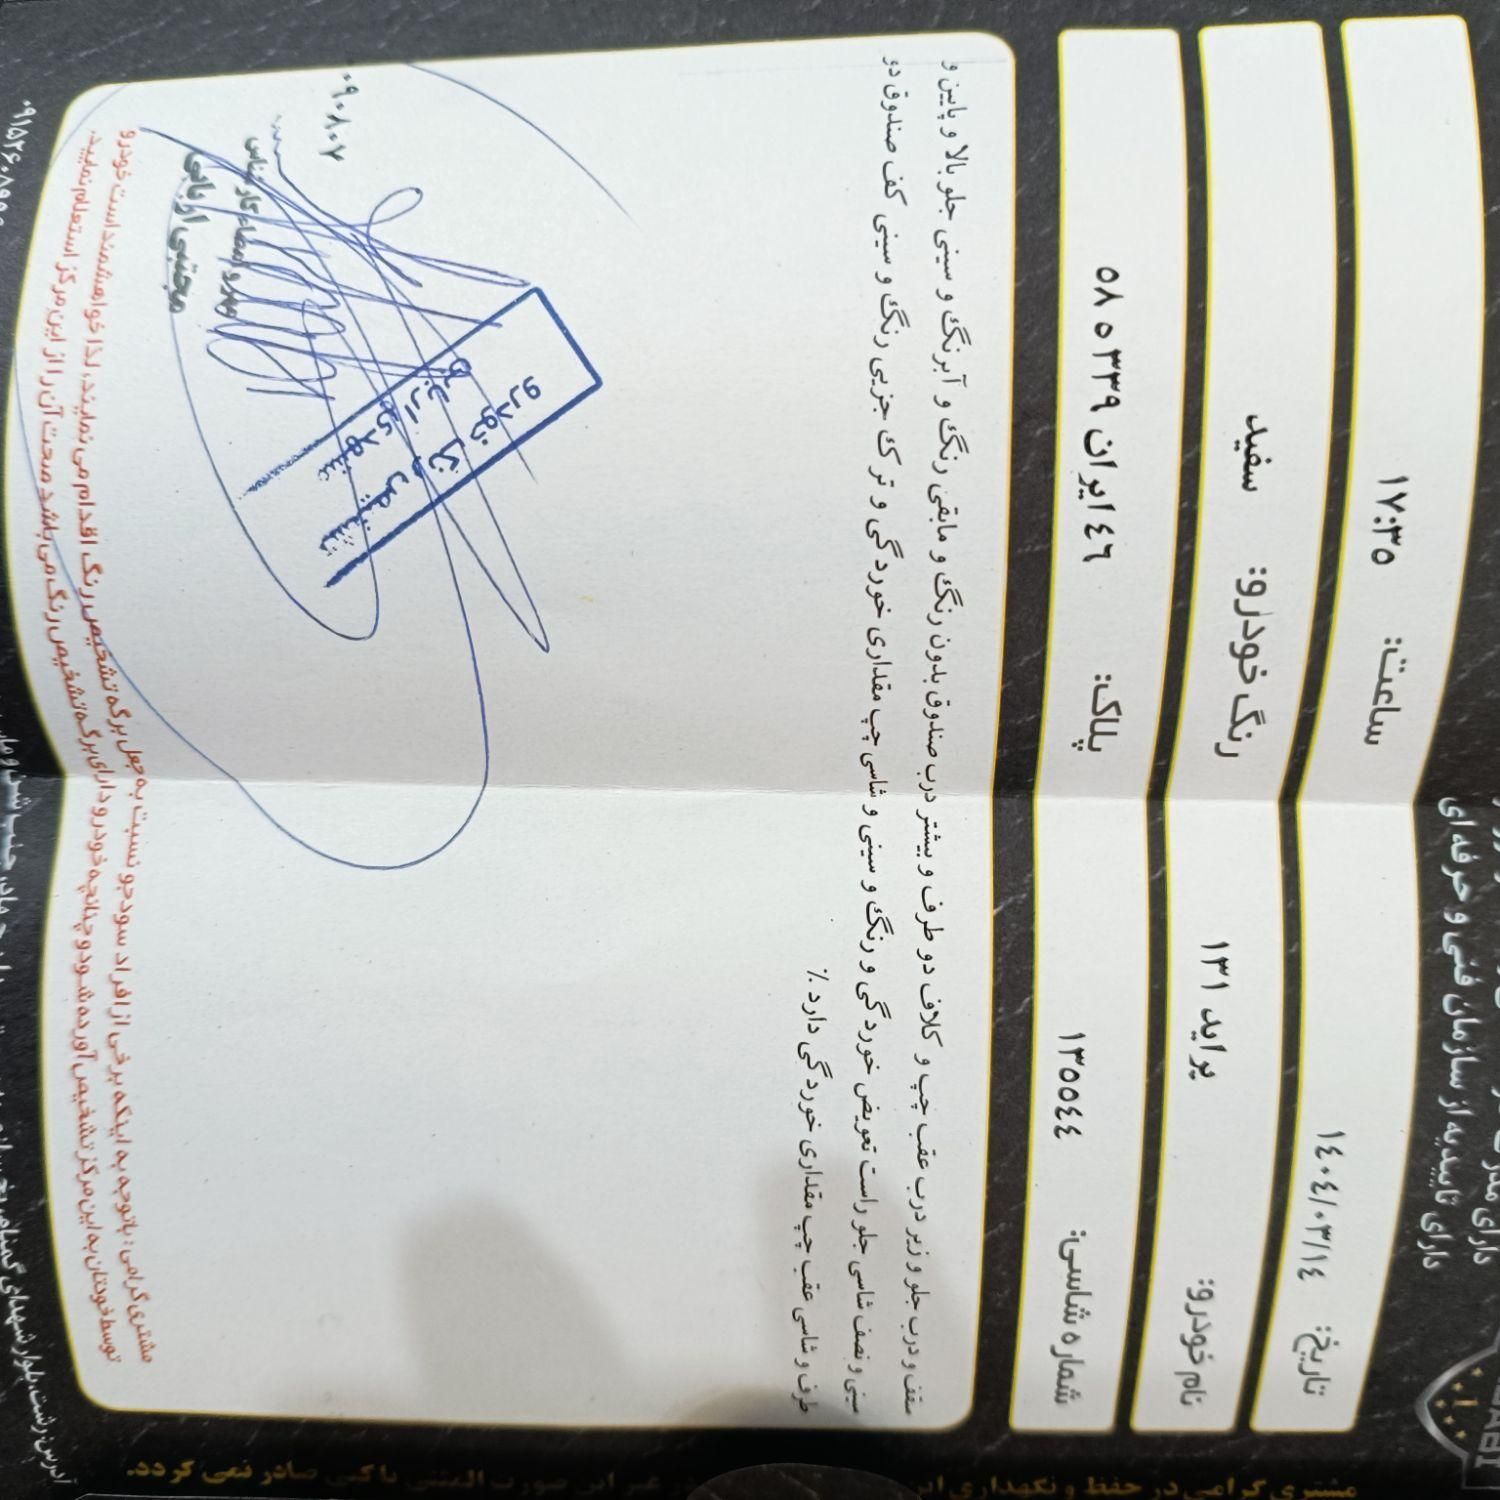 دارای تاییدیه از سازمان فنی و حرفه ای
تاریخ: ١٤٠٤/٠٣/١٤
ساعت: ١٧:٣٥
نام خودرو: پراید ١٣١
رنگ خودرو: سفید
شماره شاسی: ١٣٥٥٤٤
پلاک: ٤٦ ایران ٣٣٩ ٥ ٥٨
سقف و درب جلو و زیر درب عقب چپ و کلاف دو طرف و بیشتر درب صندوق بدون رنگ و مابقی رنگ و آبرنگ و سینی جلو بالا و پایین و
سینی و نصف شاسی جلو راست تعویض خوردگی و رنگ و سینی و شاسی چپ مقداری خوردگی و ترک جزیی رنگ و سینی کف صندوق دو
طرف و شاسی عقب چپ مقداری خوردگی دارد ٪
٠٩٠٨٠٧
مهر و امضاء کارشناس
مجتبی اربابی
تشخیص رنگ خودرو
مهدی اربابی
مشتری گرامی: باتوجه به اینکه برخی از افراد سودجو نسبت به جعل برگه تشخیص رنگ اقدام می نمایند، لذا خواهشمند است خودرو
توسط خودتان به این مرکز تشخیص آورده شود و چنانچه خودرو دارای برگه تشخیص رنگ می باشد صحت آن را از این مرکز استعلام نمایید.
آدرس: رشت، بلوار شهدای گمنام
مشتری گرامی در حفظ و نگهداری این در غیر این صورت المثنی یا کپی صادر نمی گردد.